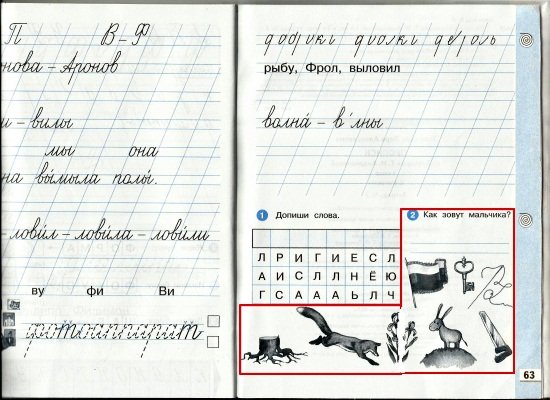 П В – Ф
нова – Аронов
и – вилы
мы она
на вы́мыла полы́.
– лови́л – лови́ла – лови́ли
ву фи Ви
фотоаппарат
рыбу, Фрол, выловил
волна́ – в'лны
1 Допиши слова.
Л Р И Г И Е С Л
А И С Л Л Н Ё Ю
Г С А А А Ь Л Ч
2 Как зовут мальчика?
63